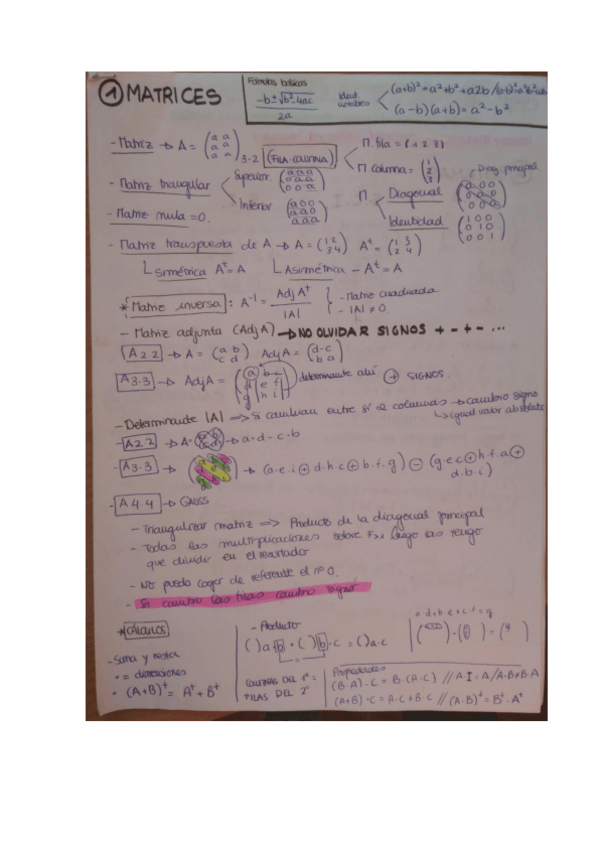 ① MATRICES
Fórmulas básicas
-b ± √b²-4ac
2a
Ident. notables
(a+b)² = a²+b²+a2b
(a-b)(a+b) = a²-b²
- Matriz → A = (a a / a a / a a) 3·2 (FILA·COLUMNA)
M. fila = (1 2 3)
M columna = (1 / 2 / 3)
- Matriz triangular
Superior (a a a / 0 a a / 0 0 a)
Inferior (a 0 0 / a a 0 / a a a)
Diag. principal
M Diagonal (a 0 0 / 0 a 0 / 0 0 a)
Identidad (1 0 0 / 0 1 0 / 0 0 1)
- Matriz nula = 0.
- Matriz transpuesta de A → A = (1 2 / 3 4) Aᵗ = (1 3 / 2 4)
Simétrica Aᵗ = A
Asimétrica - Aᵗ = A
* Matriz inversa : A⁻¹ = Adj Aᵗ / |A|
- Matriz cuadrada
- |A| ≠ 0.
- Matriz adjunta (Adj A) → NO OLVIDAR SIGNOS + - + - ...
A2·2 → A = (a b / c d) Adj A = (d -c / -b a)
A3·3 → Adj A = (a b c / d e f / g h i) determinante ahí + SIGNOS.
- Determinante |A| ⇒ Si cambian entre sí 2 columnas → cambio signo
↳ igual valor absoluto
- A2·2 → A = → a·d - c·b
- A3·3 → ⇒ (a·e·i + d·h·c + b·f·g) - (g·e·c + h·f·a + d·b·i)
- A4·4 → GAUSS
- Triangulizar matriz ⇒ Producto de la diagonal principal
- Todas las multiplicaciones sobre Fx luego las tengo
que dividir en el resultado
- No puedo coger de referente el nº 0.
- Si cambio las filas cambio signo
* CÁLCULOS
- Suma y resta
· = dimensiones
· (A+B)ᵗ = Aᵗ + Bᵗ
- Producto
( ) a·b · ( ) b·c = ( ) a·c
COLUMNAS DEL 1º =
FILAS DEL 2º
a·d+b·e+c·f = g
Propiedades
(B·A)·C = B·(A·C) // A·I = A / A·B ≠ B·A
(A+B)·C = A·C + B·C // (A·B)ᵗ = Bᵗ·Aᵗ